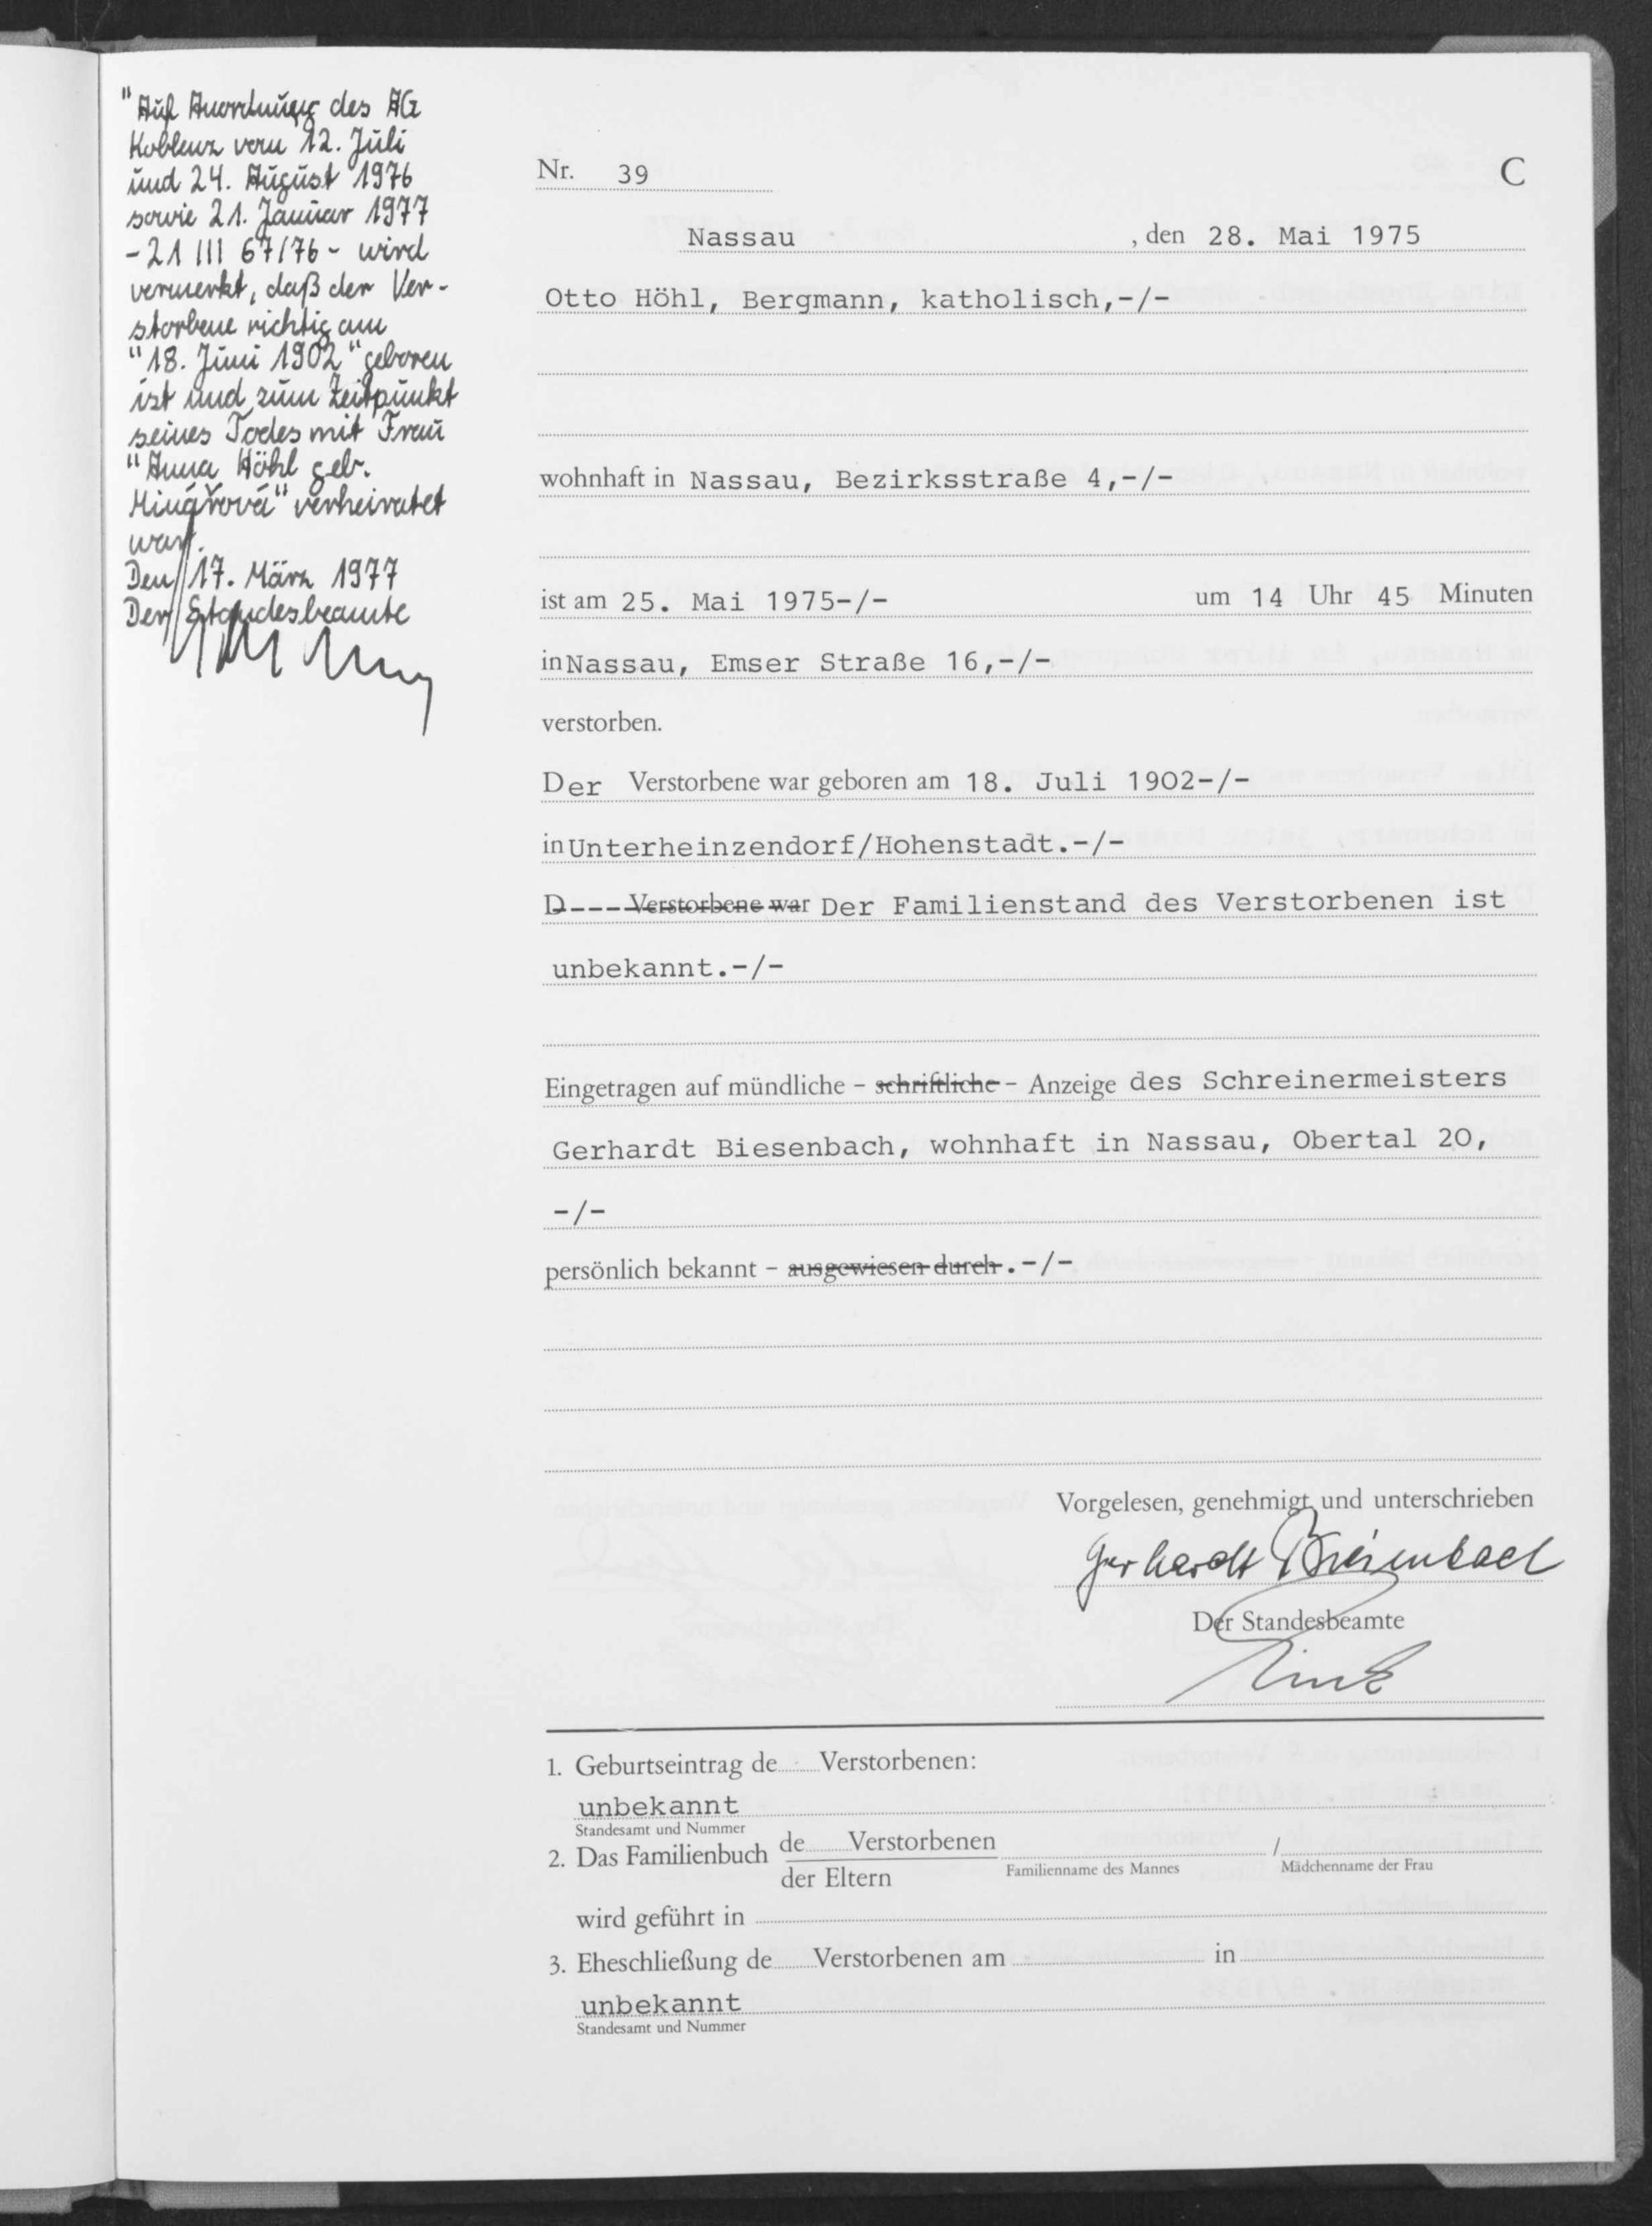 "Auf Anordnung des AG
Koblenz vom 12. Juli
und 24. August 1976
sowie 21. Januar 1977
- 21 III 67/76 - wird
vermerkt, daß der Ver-
storbene richtig am
"18. Juni 1902" geboren
ist und zum Zeitpunkt
seines Todes mit Frau
"Anna Höhl geb.
Minářová" verheiratet
war.
Den 17. März 1977
Der Standesbeamte
Nr. 39
C
Nassau , den 28. Mai 1975
Otto Höhl, Bergmann, katholisch,-/-
wohnhaft in Nassau, Bezirksstraße 4,-/-
ist am 25. Mai 1975-/- um 14 Uhr 45 Minuten
in Nassau, Emser Straße 16,-/-
verstorben.
Der Verstorbene war geboren am 18. Juli 1902-/-
in Unterheinzendorf/Hohenstadt.-/-
D--- Verstorbene war Der Familienstand des Verstorbenen ist
unbekannt.-/-
Eingetragen auf mündliche - schriftliche - Anzeige des Schreinermeisters
Gerhardt Biesenbach, wohnhaft in Nassau, Obertal 20,
-/-
persönlich bekannt - ausgewiesen durch .-/-
Vorgelesen, genehmigt und unterschrieben
Gerhardt Biesenbach
Der Standesbeamte
1. Geburtseintrag de Verstorbenen:
unbekannt
Standesamt und Nummer
2. Das Familienbuch de Verstorbenen /
der Eltern Familienname des Mannes Mädchenname der Frau
wird geführt in
3. Eheschließung de Verstorbenen am in
unbekannt
Standesamt und Nummer